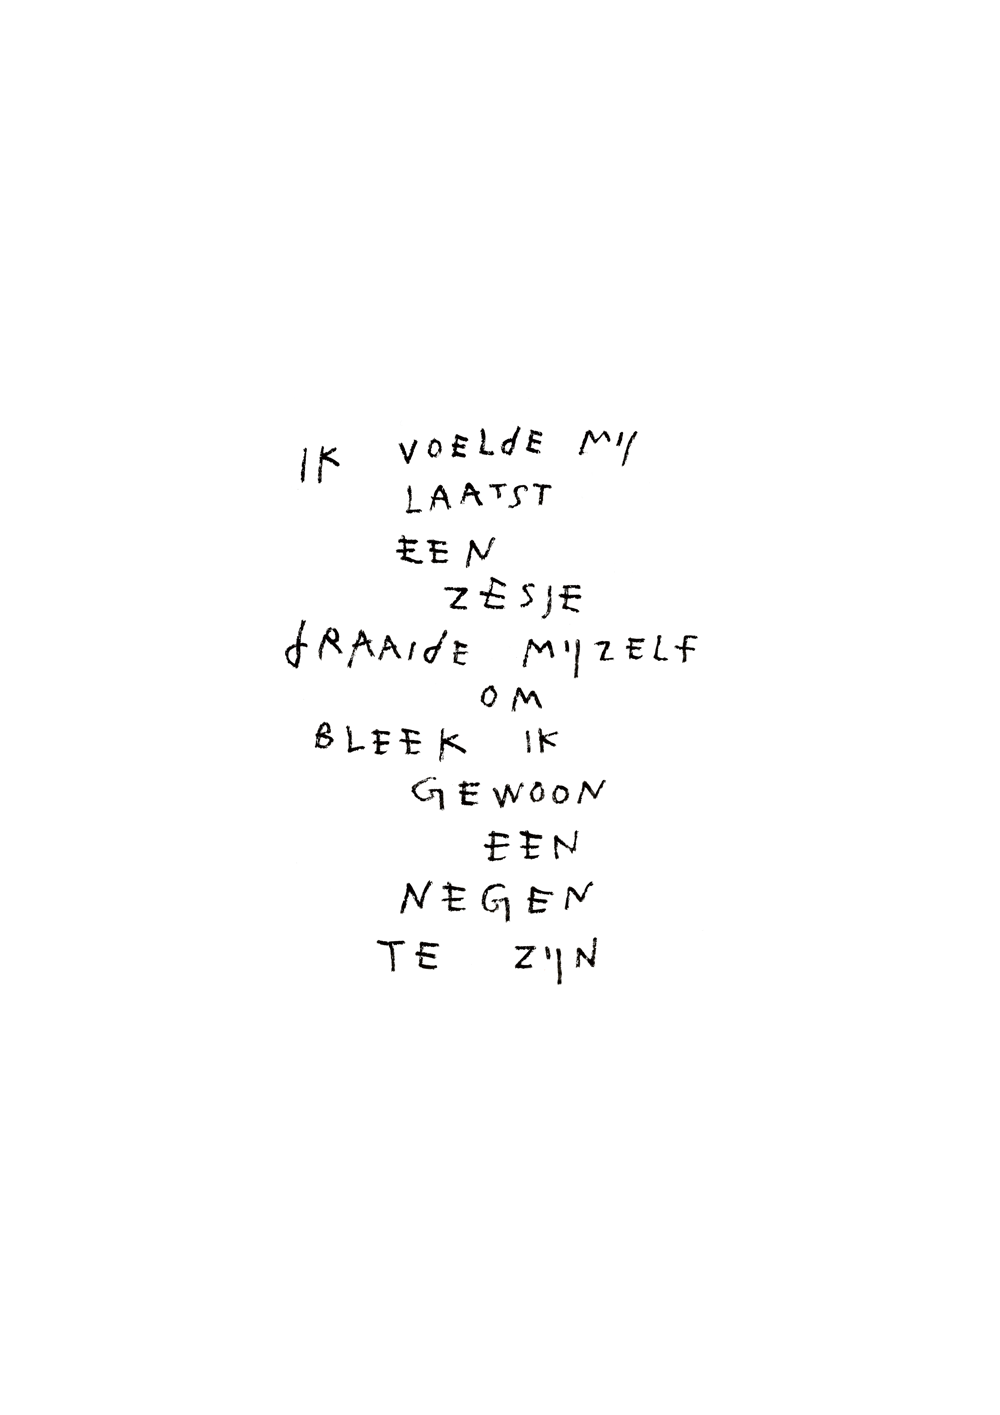 IK VOELdE MIJ
LAATST
EEN
ZESJE
dRAAIdE MIJZELF
OM
BLEEK IK
GEWOON
EEN
NEGEN
TE ZIJN